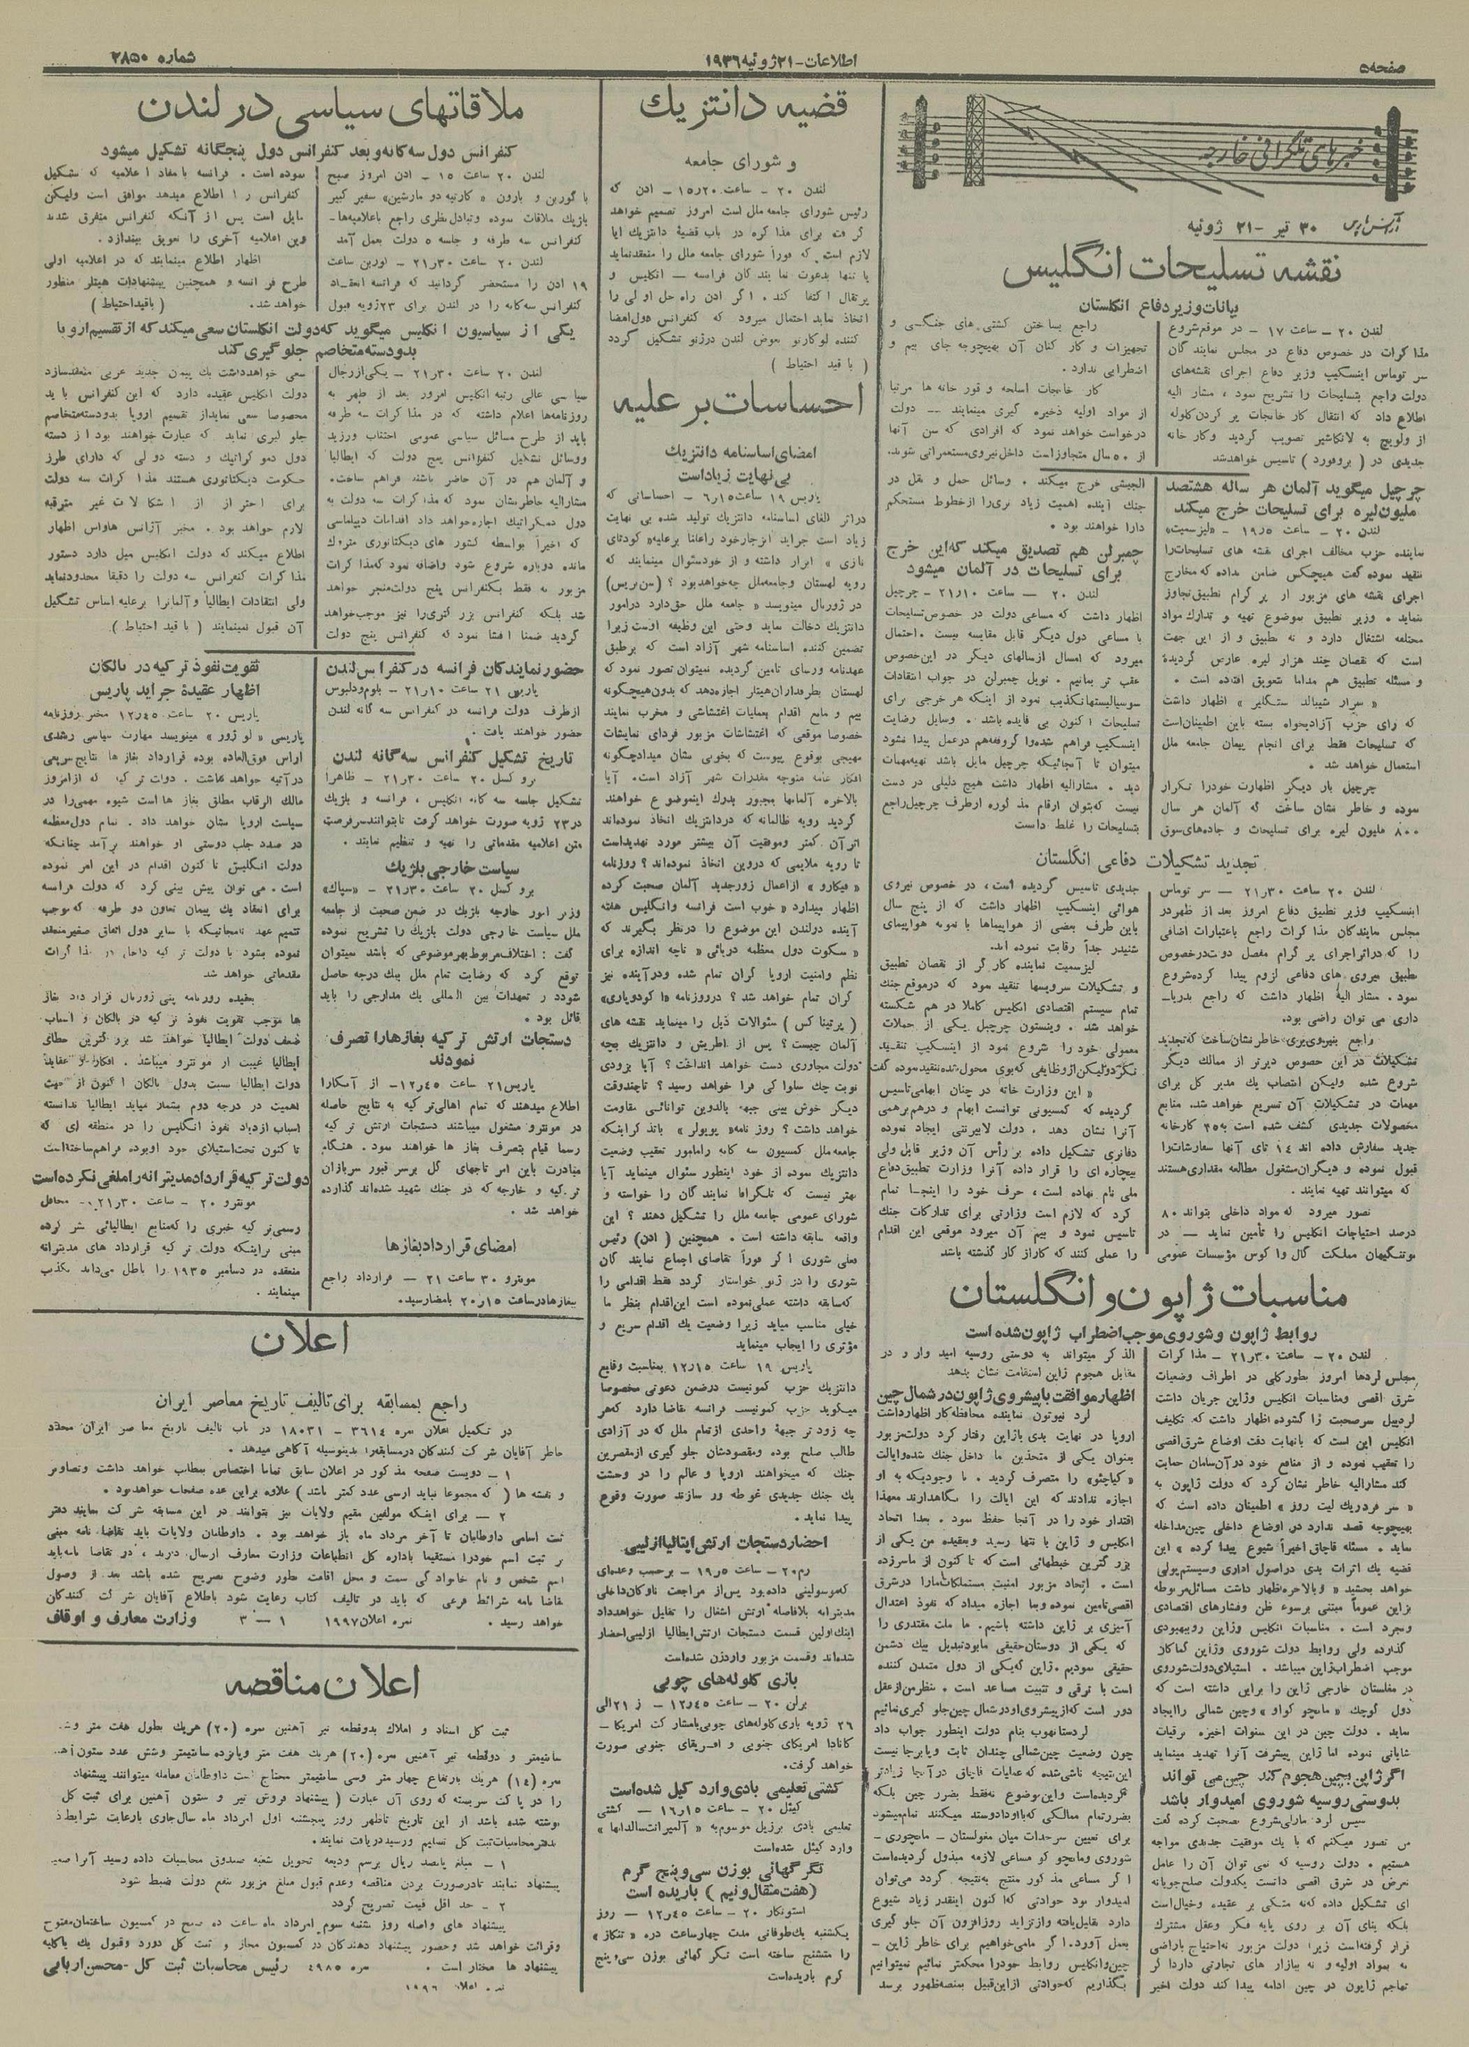 صفحه ۵
اطلاعات - ۲۱ ژوئیه ۱۹۳۶
شماره ۲۸۵۰
خبرهای تلگرافی خارجه
۳۰ تیر - ۲۱ ژوئیه
نقشه تسلیحات انگلیس
بیانات وزیر دفاع انگلستان
لندن ۲۰ - ساعت ۱۷ - در موقع شروع
مذاکرات در خصوص دفاع در مجلس نمایندگان
سر توماس اینسکیپ وزیر دفاع اجرای نقشه‌های
دولت راجع بتسلیحات را تشریح نمود ، مشار الیه
اطلاع داد که انتقال کار خانجات پر کردن کلوله
از ولویچ به لانکاشیر تصویب گردید وکار خانه
جدیدی در ( بروفورد ) تاسیس خواهدشد
راجع بساختن کشتی های جنگی و
تجهیزات و کار کنان آن بهیچوجه جای بیم و
اضطرابی ندارد .
کار خانجات اسلحه و قور خانه ها مرتبا
از مواد اولیه ذخیره گیری مینمایند - دولت
درخواست خواهد نمود که افرادی که سن آنها
از ۵۰ سال متجاوزاست داخل نیروی مستعمراتی شوند.
چرچیل میگوید آلمان هر ساله هشتصد
ملیون لیره برای تسلیحات خرج میکند
لندن ۲۰ - ساعت ۱۹ر۵ - «لیزسمیت»
نماینده حزب مخالف اجرای نقشه های تسلیحات را
تنقید نموده گفت هیچکس ضامن نداده که مخارج
اجرای نقشه های مزبور از پر گرام تطبیق تجاوز
ننماید . وزیر تطبیق بموضوع تهیه و تدارک مواد
مختلفه اشتغال دارد و نه تطبیق و از این جهت
است که نقصان چند هزار لیره عارض گردیده
و مسئله تطبیق هم مداما بتعویق افتاده است .
که رای حزب آزادیخواه بسته باین اطمینان است
که تسلیحات فقط برای انجام پیمان جامعه ملل
استعمال خواهد شد .
چرچیل بار دیگر اظهارت خودرا تکرار
نموده و خاطر نشان ساخت که آلمان هر سال
۸۰۰ ملیون لیره برای تسلیحات و جاده‌های سوق
الجیشی خرج میکند . وسائل حمل و نقل در
جنک آینده اهمیت زیاد تری را از خطوط مستحکم
دارا خواهند بود .
چمبرلن هم تصدیق میکند که این خرج
برای تسلیحات در آلمان میشود
لندن ۲۰ - ساعت ۲۱ر۱۰ - چرچیل
اظهار داشت که مساعی دولت در خصوص تسلیحات
با مساعی دول دیگر قابل مقایسه نیست . احتمال
میرود که امسال از سالهای دیگر در این خصوص
عقب تر بمانیم . نویل چمبرلن در جواب انتقادات
سوسیالیستها تکذیب نمود از اینکه هر خرجی برای
تسلیحات اکنون بی فایده باشد . وسایل رضایت
میتوان تا آنجائیکه چرچیل مایل باشد تهیه مهمات
دید . مشارالیه اظهار داشت هیچ دلیلی در دست
نیست که بتوان ارقام مذ کوره از طرف چرچیل راجع
بتسلیحات را غلط دانست
تجدید تشکیلات دفاعی انگلستان
لندن ۲۰ ساعت ۲۱ر۳۰ - سر توماس
اینسکیپ وزیر تطبیق دفاع امروز بعد از ظهر در
مجلس نمایندگان مذا کرات راجع باعتبارات اضافی
را که در اثر اجرای پر گرام مفصل دولت در خصوص
تطبیق نیروی های دفاعی لزوم پیدا کرده شروع
نمود . مشار الیه اظهار داشت که راجع بدریا -
داری می توان راضی بود .
راجع بنیروی بری خاطر نشان ساخت که تجدید
تشکیلات در این خصوص دیرتر از ممالک دیگر
شروع شده ولیکن انتصاب یک مدیر کل برای
مهمات در تشکیلات آن تسریع خواهد شد. منابع
محصولات جدیدی کشف شده است به ۲۵ کارخانه
جدید سفارش داده اند ۱۴ تای آنها سفارشات را
قبول نموده و دیگران مشغول مطالعه مقداری هستند
که میتوانند تهیه نمایند .
تصور میرود که مواد داخلی بتواند ۸۰
درصد احتیاجات انکلیس را تأمین نماید - در
جدیدی تاسیس گردیده است، در خصوص نیروی
هوائی اینسکیپ اظهار داشت که از پنج سال
باین طرف بعضی از هواپیماها با نمونه هواپیمای
شنیدر جداً رقابت نموده اند.
لیزسمیت نماینده کار گر از نقصان تطبیق
و تشکیلات سرویسها تنقید نمود که درموقع جنک
تمام سیستم اقتصادی انکلیس کاملا در هم شکسته
خواهد شد . وینستون چرچیل یکی از حملات
معمولی خود را شروع نمود از اینسکیپ تنقید
نکرد ولیکن از وظایفی که بوی محول شده تنقید نموده گفت
« این وزارت خانه در چنان ابهامی تاسیس
گردیده که کمسیونی توانست ابهام و درهم برهمی
آنرا نشان دهد . دولت لابیرنتی ایجاد نموده
دفاتری تشکیل داده بر رأس آن وزیر قابل ولی
بیچاره ای را قرار داده آنرا وزارت تطبیق دفاع
ملی نام نهاده است ، حرف خود را اینجا تمام
کرد که لازم است وزارتی برای تدارکات جنک
تاسیس نمود و بیم آن میرود موقعی این اقدام
را عملی کنند که کار از کار گذشته باشد
مناسبات ژاپون و انگلستان
روابط ژاپون وشوروی موجب اضطراب ژاپون شده است
لندن ۲۰ - ساعت ۲۱ر۳۰ - مذا کرات
مجلس لردها امروز بطور کلی در اطراف وضعیات
شرق اقصی ومناسبات انکلیس وژاپن جریان داشت
انکلیس این است که بانهایت دقت اوضاع شرق اقصی
را تعقیب نموده و از منافع خود در آن سامان حمایت
کند مشارالیه خاطر نشان کرد که دولت ژاپون به
« سر فردریک لیت روز » اطمینان داده است که
بهیچوجه قصد ندارد در اوضاع داخلی چین مداخله
نماید . مسئله قاچاق اخیراً شیوع پیدا کرده » این
قضیه یک اثرات بدی دراصول اداری وسیستم پولی
خواهد بخشید » وبالاخره اظهار داشت مسائل مربوطه
بژاپن عموماً مبتنی برسوء ظن وفشارهای اقتصادی
وبحری است . مناسبات انکلیس وژاپن روببهبودی
گذارده ولی روابط دولت شوروی وژاپن کماکان
موجب اضطراب ژاپن میباشد . استیلای دولت شوروی
در مغلستان خارجی ژاپن را براین داشته است که
دول کوچک «مانچو کواو» وچین شمالی را ایجاد
نماید . دولت چین در این سنوات اخیره ترقیات
شایانی نموده اما ژاپن پیشرفت آنرا تهدید مینماید
اگر ژاپن بچین هجوم کند چین می تواند
بدوستی روسیه شوروی امیدوار باشد
سپس لرد مارلی شروع صحبت کرده گفت
من تصور میکنم که با یک موفقیت جدیدی مواجه
هستیم . دولت روسیه که نمی توان آن را عامل
تعرض در شرق اقصی دانست یکدولت صلح جویانه
ای تشکیل داده که نه متکی بر عقیده وخیال است
بلکه بنای آن بر روی پایه فکر وعقل مشترک
قرار گرفته است زیرا دولت مزبور نه احتیاج باراضی
نه بمواد اولیه و نه ببازار های تجارتی دارد اگر
تهاجم ژاپون در چین ادامه پیدا کند دولت اخیر
الذ کر میتواند به دوستی روسیه امید وار و در
مقابل هجوم ژاپن استقامت نشان بدهد
اظهار موافقت با پیشروی ژاپون در شمال چین
لرد نیوتون نماینده محافظه کار اظهارداشت
اروپا در نهایت بدی باژاپن رفتار کرد دولت مزبور
بعنوان یکی از متحدین ما داخل جنک شده وایالت
«کیاچئو» را متصرف گردید . با وجودیکه به او
اجازه ندادند که این ایالت را نگاهدارند معهذا
اقتدار خود را در آنجا حفظ نمود . بعدا اتحاد
انکلیس و ژاپن با نتها رسید وبعقیده من یکی از
بزر گترین خبطهائی است که تا کنون از ماسرزده
است . اتحاد مزبور امنیت مستملکات مارا درشرق
اقصی تامین نموده وبما اجازه میداد که نفوذ اعتدال
آمیزی بر ژاپن داشته باشیم. ما ملت مقتدری را
که یکی از دوستان حقیقی مابود تبدیل بیک دشمن
حقیقی نمودیم . ژاپن که یکی از دول متمدن کننده
است با ترقی و تثبیت مساعد است . بنظر من از عقل
دور است که از پیشروی او در شمال چین جلو گیری نمائیم
لردستانهوپ بنام دولت اینطور جواب داد
چون وضعیت چین شمالی چندان ثابت وپابرجا نیست
این نتیجه ناشی شده که عملیات قاچاق در آنجا زیادتر
گردیده است واین موضوع نه فقط بضرر چین بلکه
بضرر تمام ممالکی که با او دادوستد میکنند تمام میشود
برای تعیین سرحدات میان مغولستان - مانچوری -
شوروی ومانچو کو مساعی لازمه مبذول گردیده است
اگر مساعی مذ کور منتج به نتیجه گردد می‌توان
امیدوار بود حوادثی که اکنون اینقدر زیاد شیوع
دارد تقلیل یافته وازتزاید روزافزون آن جلو گیری
بعمل آورد . اگر ما می‌خواهیم برای خاطر ژاپن -
چین وانکلیس روابط خودرا محکمتر نمائیم نمیتوانیم
بگذاریم که حوادثی از این قبیل بمنصه ظهور برسد
قضیه دانتزیک
و شورای جامعه
لندن ۲۰ - ساعت ۱۵ر۲۰ - ادن که
رئیس شورای جامعه ملل است امروز تصمیم خواهد
گرفت برای مذا کره در باب قضیه دانتزیک آیا
لازم است که فوراً شورای جامعه ملل را منعقد نماید
یا تنها بدعوت نمایندگان فرانسه - انکلیس و
پرتقال اکتفا کند . اگر ادن راه حل اولی را
اتخاذ نماید احتمال میرود که کنفرانس دول امضا
کننده لوکارنو بعوض لندن درژنو تشکیل گردد
( با قید احتیاط )
احساسات بر علیه
امضای اساسنامه دانتزیک
بی نهایت زیاد است
پاریس ۱۹ ساعت ۶ر۱۵ - احساساتی که
دراثر الغای اساسنامه دانتزیک تولید شده بی نهایت
زیاد است جراید انزجار خود راعلنا برعلیه «کودتای
نازی » ابراز داشته و از خودسئوال مینمایند که
رویه لهستان وجامعه ملل چه خواهد بود ؟ (سن بریس)
در ژورنال مینویسد « جامعه ملل حق دارد درامور
دانتزیک دخالت نماید وحتی این وظیفه اوست زیرا
تضمین کننده اساسنامه شهر آزاد است که برطبق
عهدنامه ورسای تامین گردیده نمیتوان تصور نمود که
لهستان بطرفداران هیتلر اجازه دهد که بدون هیچگونه
بیم و مانع اقدام بعملیات اغتشاشی و مخرب نمایند
خصوصا موقعی که اغتشاشات مزبور فردای نمایشات
مهیجی بوقوع پیوست که بخوبی نشان میداد چگونه
افکار عامه متوجه مقدرات شهر آزاد است. آیا
بالاخره آلمانها مجبور بدرک اینموضوع خواهند
گردید رویه ظالمانه که دردانتزیک اتخاذ نموده‌اند
اثر آن کمتر وموفقیت آن بیشتر مورد تهدید است
تا رویه ملایمی که دروین اتخاذ نموده‌اند ؟ روزنامه
«فیکارو» ازاعمال زور جدید آلمان صحبت کرده
اظهار میدارد « خوب است فرانسه وانگلیس هفته
آینده درلندن این موضوع را درنظر بگیرند که
«سکوت دول معظمه دریائی » تاچه اندازه برای
نظم وامنیت اروپا گران تمام شده ودرآینده نیز
گران تمام خواهد شد ؟ درروزنامه «اکودوپاری»
( پرتینا کس ) سئوالات ذیل را مینماید نقشه های
آلمان چیست ؟ پس از اطریش و دانتزیک بچه
دولت مجاوری دست خواهد انداخت ؟ آیا بزودی
نوبت چک سلوا کی فرا خواهد رسید ؟ تاچندوقت
خواهد داشت ؟ روز نامه« پوپولر » باتذ کر اینکه
جامعه ملل کمسیون سه گانه را مامور تعقیب وضعیت
دانتزیک نموده از خود اینطور سئوال مینماید آیا
بهتر نیست که تلگرافا نمایند گان را خواسته و
شورای عمومی جامعه ملل را تشکیل دهند ؟ این
واقعه سابقه داشته است . همچنین ( ادن) رئیس
فعلی شوری اگر فوراً تقاضای اجماع نمایند گان
شوری را در ژنو خواستار گردد فقط اقدامی را
که سابقه داشته عملی نموده است این اقدام بنظر ما
خیلی مناسب میاید زیرا وضعیت یک اقدام سریع و
مؤثری را ایجاب مینماید
پاریس ۱۹ ساعت ۱۲ر۱۵ بمناسبت وقایع
دانتزیک حزب کمونیست درضمن دعوتی مخصوصا
میگوید حزب کمونیست فرانسه تقاضا دارد که هر
چه زود تر جبهه واحدی از تمام ملل که در آزادی
طالب صلح بوده ومقصودشان جلو گیری ازمقصرین
جنک که میخواهند اروپا و عالم را در وحشت
یک جنک جدیدی غوطه ور سازند صورت وقوع
پیدا نماید .
احضار دستجات ارتش ایتالیا از لیبی
رم ۲۰ - ساعت ۱۹ر۵ - برحسب وعده‌ای
که موسولینی داده بود پس از مراجعت ناوگان داخلی
مدیترانه بلافاصله ارتش اشغال را تقلیل خواهد داد
اینک اولین قسمت دستجات ارتش ایطالیا ازلیبی احضار
شده‌اند وقسمت مزبور واردژن شده است
بازی گلوله‌های چوبی
برلن ۲۰ - ساعت ۱۲ر۴۵ - از ۲۱ الی
۲۶ ژویه بازی کلوله های چوبی باشتراکت امریکا -
کانادا امریکای جنوبی و افریقای جنوبی صورت
خواهد گرفت.
کشتی تعلیمی بادی وارد کیل شده است
کیل ۲۰ - ساعت ۱۶ر۱۵ - کشتی
تعلیمی بادی برزیل موسوم به « آلمیرانت سالدانها »
وارد کیل شده است
تگرگهائی بوزن سی و پنج گرم
(هفت مثقال و نیم ) باریده است
استوتکار ۲۰ - ساعت ۱۲ر۴۵ - روز
یکشنبه یک طوفانی مدت چهارساعت دره « تنکاز »
را متشنج ساخته است تگر گهائی بوزن سی و پنج
گرم باریده است
ملاقاتهای سیاسی در لندن
کنفرانس دول سه گانه و بعد کنفرانس دول پنجگانه تشکیل میشود
لندن ۲۰ ساعت ۱۵ - ادن امروز صبح
با گوربن و بارون « کارتیه دو مارشین» سفیر کبیر
بلژیک ملاقات نموده وتبادل نظری راجع باعلامیه‌ها -
کنفرانس سه طرفه و جلسه ۵ دولت بعمل آمد
لندن ۲۰ ساعت ۲۱ر۳۰ - اوربن ساعت
۱۹ ادن را مستحضر گردانید که فرانسه انعقاد
کنفرانس سه گانه را در لندن برای ۲۳ ژویه قبول
نموده است . فرانسه با مفاد اعلامیه که تشکیل
کنفرانس را اطلاع میدهد موافق است ولیکن
مایل است پس از آنکه کنفرانس متفرق شدند
وین اعلامیه آخری را تعویق بیندازد.
اظهار اطلاع مینمایند که در اعلامیه اولی
طرح فرانسه و همچنین پیشنهادات هیتلر منظور
خواهد شد. ( باقید احتیاط )
یکی از سیاسیون انکلیس میگوید که دولت انکلستان سعی میکند که از تقسیم اروپا
بدو دسته متخاصم جلو گیری کند
لندن ۲۰ ساعت ۲۱ر۳۰ - یکی از رجال
سیاسی عالی رتبه انکلیس امروز بعد از ظهر به
روزنامه‌ها اعلام داشته که در مذا کرات سه طرفه
باید از طرح مسائل سیاسی عمومی اجتناب ورزید
ووسائل تشکیل کنفرانس پنج دولت که ایطالیا
و آلمان هم در آن حاضر باشند فراهم ساخت.
مشارالیه خاطر نشان نمود که مذا کرات سه دولت به
دول دمکراتیک اجازه خواهد داد اقدامات دیپلماسی
که اخیراً بواسطه کشور های دیکتاتوری متروک
مانده دوباره شروع شود واضافه نمود که مذا کرات
مزبور نه فقط بکنفرانس پنج دولت منجر خواهد
شد بلکه کنفرانس بزر گتری را نیز موجب خواهد
گردید ضمنا افشا نمود که کنفرانس پنج دولت
سعی خواهد داشت یک پیمان جدید غربی منعقد سازد
دولت انکلیس عقیده دارد که این کنفرانس با ید
مخصوصا سعی نماید از تقسیم اروپا بدودسته متخاصم
جلو گیری نماید که عبارت خواهند بود از دسته
دول دمو کراتیک و دسته دولی که دارای طرز
حکومت دیکتاتوری هستند مذا کرات سه دولت
برای احتراز از اشکالات غیر مترقبه
لازم خواهد بود . مخبر آژانس هاواس اظهار
اطلاع میکند که دولت انکلیس میل دارد دستور
مذا کرات کنفرانس سه دولت را دقیقا محدود نماید
ولی انتقادات ایطالیا و آلمانرا برعلیه اساس تشکیل
آن قبول نمینمایند ( با قید احتیاط )
حضور نمایندگان فرانسه در کنفرانس لندن
پاریس ۲۱ ساعت ۲۱ر۱۰ - بلوم ودلبوس
ازطرف دولت فرانسه در کنفرانس سه گانه لندن
حضور خواهند یافت .
تاریخ تشکیل کنفرانس سه گانه لندن
برو کسل ۲۰ ساعت ۲۱ر۳۰ - ظاهراً
تشکیل جلسه سه گانه انکلیس ، فرانسه و بلژیک
در ۲۳ ژویه صورت خواهد گرفت تابتوانند سرفرصت
متن اعلامیه مقدماتی را تهیه و تنظیم نمایند .
سیاست خارجی بلژیک
برو کسل ۲۰ ساعت ۲۱ر۳۰ - «سپاک»
وزیر امور خارجه بلژیک در ضمن صحبت از جامعه
ملل سیاست خارجی دولت بلژیک را تشریح نموده
گفت : اختلاف مربوط بهرموضوعی که باشد نمیتوان
توقع کرد که رضایت تمام ملل بیک درجه حاصل
شود در تعهدات بین المللی یک مدارجی را باید
قائل بود .
دستجات ارتش ترکیه بغازها را تصرف
نمودند
پاریس ۲۱ ساعت ۱۲ر۴۵ - از آنکارا
اطلاع میدهند که تمام اهالی تر کیه به نتایج حاصله
در مونترو مشغول میباشند دستجات ارتش تر کیه
رسما قیام بتصرف بغاز ها خواهند نمود . هنگام
مبادرت باین امر تاجهای گل برسر قبور سربازان
تر کیه و خارجه که در جنک شهید شده‌اند گذارده
خواهد شد .
امضای قرارداد بغازها
مونترو ۳۰ ساعت ۲۱ - قرارداد راجع
ببغازها درساعت ۲۰ر۱۵ بامضا رسید.
تقویت نفوذ ترکیه در بالکان
اظهار عقیده جراید پاریس
پاریس ۲۰ ساعت ۱۲ر۴۵ مخبر روزنامه
پاریسی « لو ژور » مینویسد مهارت سیاسی رشدی
اراس فوق‌العاده بوده قرارداد بغاز ها نتایج سریعی
درآتیه خواهد گذاشت . دولت تر کیه که از امروز
مالک الرقاب مطلق بغاز ها است شیوه مهمی را در
سیاست اروپا نشان خواهد داد . تمام دول معظمه
در صدد جلب دوستی او خواهند برآمد چنانکه
دولت انگلیس تا کنون اقدام در این امر نموده
است . می توان پیش بینی کرد که دولت فرانسه
برای انعقاد یک پیمان تعاون دو طرفه که موجب
تتمیم عهد نامجاتیکه با سایر دول اتفاق صغیر منعقد
نموده بشود با دولت تر کیه داخل در مذا کرات
مقدماتی خواهد شد
بعقیده روزنامه پتی ژورنال قرار داد بغاز
ها موجب تقویت نفوذ تر کیه در بالکان و اسباب
ضعف دولت ایطالیا خواهد شد بزر گترین خطای
ایطالیا غیبت از مونترو میباشد .
دولت ایطالیا نسبت بدول بالکان اکنون از حیث
اهمیت در درجه دوم بشمار میاید ایطالیا ندانسته
اسباب ازدیاد نفوذ انگلیس را در منطقه ای که
تا کنون تحت استیلای خود اوبوده فراهم ساخته است
دولت ترکیه قرارداد مدیترانه را ملغی نکرده است
مونترو ۲۰ - ساعت ۲۱ر۳۰ - محافل
رسمی تر کیه خبری را که منابع ایطالیائی نشر کرده
مبنی براینکه دولت تر کیه قرارداد های مدیترانه
منعقده در دسامبر ۱۹۳۵ را باطل میداند تکذیب
مینمایند .
اعلان
راجع بمسابقه برای تالیف تاریخ معاصر ایران
در تکمیل اعلان نمره ۳۶۱۴ - ۱۸۰۳۱ در باب تالیف تاریخ معاصر ایران مجدد
خاطر آقایان شرکت کنندگان درمسابقه را بدینوسیله آگاهی میدهد .
۱ - دویست صفحه مذ کور در اعلان سابق تماما اختصاص بمطالب خواهد داشت وتصاویر
و نقشه ها ( که مجموعا نباید ازسی عدد کمتر باشد ) علاوه براین عده صفحات خواهد بود .
۲ - برای اینکه مولفین مقیم ولایات نیز بتوانند در این مسابقه شرکت نمایند دفتر
ثبت اسامی داوطلبان تا آخر مرداد ماه باز خواهد بود . داوطلبان ولایات باید تقاضا نامه مبنی
بر ثبت اسم خودرا مستقیما باداره کل انطباعات وزارت معارف ارسال دارند ، در تقاضا نامه باید
اسم شخص و نام خانوادگی سمت و محل اقامت بطور وضوح تصریح شده باشد بعد از وصول
تقاضا نامه شرائط فرعی که باید در تالیف کتاب رعایت شود باطلاع آقایان شرکت کنندگان
خواهد رسید . نمره اعلان ۱۹۹۷ ۱ - ۳ وزارت معارف و اوقاف
اعلان مناقصه
ثبت کل اسناد و املاک بدوقطعه تیر آهنین نمره (۲۰) هریک بطول هفت متر و
سانتیمتر و دوقطعه تیر آهنین نمره (۲۰) هریک هفت متر وپانزده سانتیمتر وشش عدد ستون
نمره (۱۴) هریک بارتفاع چهار متر وسی سانتیمتر محتاج است داوطلبان معامله میتوانند پیشنهاد
را در پا کت سربسته که روی آن عبارت ( پیشنهاد فروش تیر و ستون آهنین برای ثبت کل
نوشته شده باشد از این تاریخ تاظهر روز پنجشنبه اول امرداد ماه سال جاری بارعایت شرایط ذ
بدفتر محاسبات ثبت کل تسلیم ورسید دریافت نمایند .
۱ - مبلغ پانصد ریال برسم ودیعه تحویل شعبه صندوق محاسبات داده رسید آنرا
پیشنهاد نمایند تادرصورت بردن مناقصه وعدم قبول مبلغ مزبور بنفع دولت ضبط شود
۲ - حد اقل قیمت تصریح گردد
پیشنهاد های واصله روز شنبه سوم امرداد ماه ساعت ده صبح در کمسیون ساختمان مفتوح
وقرائت خواهد شد وحضور پیشنهاد دهندگان در کمسیون مجاز و ثبت کل درد وقبول یک یا کلیه
پیشنهاد ها مختار است . نمره ۴۹۸۵ رئیس محاسبات ثبت کل - محسن اربابی
نمره اعلان ۱۹۹۶